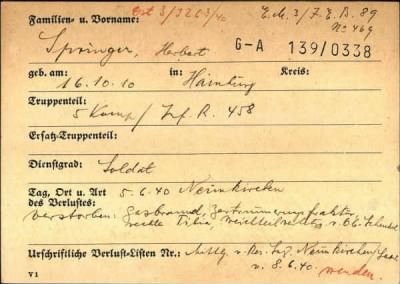 Ost 3/3263/40 E.M. 3/7.E.B. 89
Familien- u. Vorname: No 469
Springer, Herbert G-A 139/0338
geb. am: 16.10.10 in: Hamburg Kreis:
Truppenteil: 5 Komp/ Inf. R. 458
Ersatz-Truppenteil:
Dienstgrad: Soldat
Tag, Ort u. Art 5.6.40 Neunkirchen
des Verlustes:
verstorben: Gasbrand, Zertrümmerungsfraktur
rechte Tibia, Weichteil
Urschriftliche Verlust-Listen Nr.: Mittlg. v. Res. Laz. Neunkirchen/Saar
v. 8.6.40. wenden.
V 1